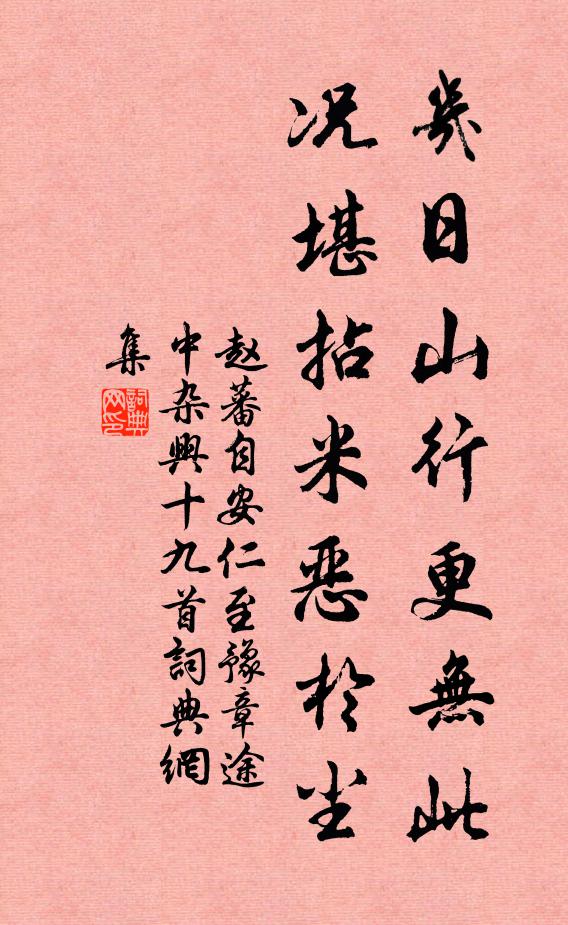 幾日山行更無此
况堪拈米惡於尘
赵蕃自安仁至豫章途
中杂興十九首詞典網
集
詞典网印